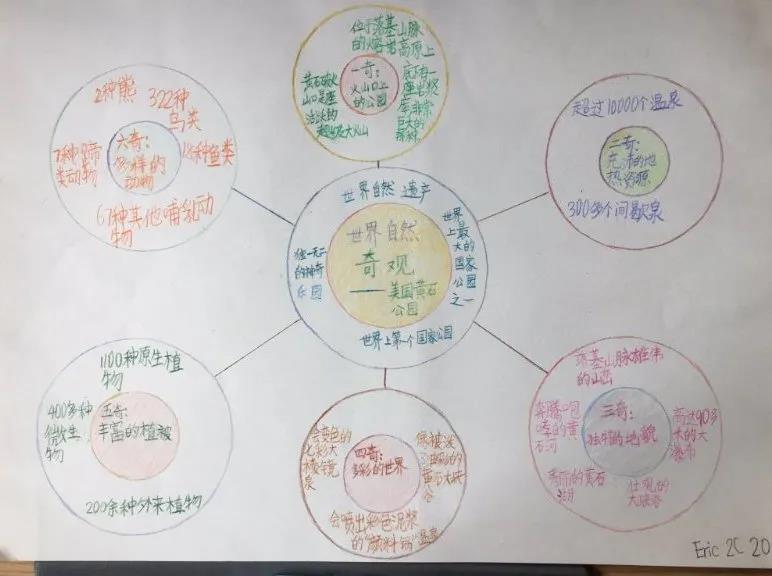 位于落基山脉
的熔岩高原上
一奇:
火山口上
的公园
黄石破火
山口是座
活泼的
超级大火山
底下有一
座出极
库非常
巨大的
2种熊
322种
鸟类
六奇:
多样的
动物
7种
类动物
18种鱼类
67种其他哺乳动
物
超过10000个温泉
二奇:
充沛的地
热资源
300多个间歇泉
世界自然遗产
独一无二
的神奇
乐园
世界自然
奇观
——美国黄石
公园
世界上最大的国家公园之一
世界上第一个国家公园
1100种原生植
物
400多种
微生
物
五奇:
丰富的植被
200余种外来植物
会变色的
七彩大
棱镜
泉
四奇:
多彩的世界
黄石大峡
谷
会喷出彩色泥浆
的“颜料锅”温泉
落基山脉雄伟
的山峦
奔腾咆
哮的黄
石河
三奇:
独特的地貌
高达90多
米的大
瀑布
秀丽的黄石
湖
壮观的
大峡谷
Eric 2C 20